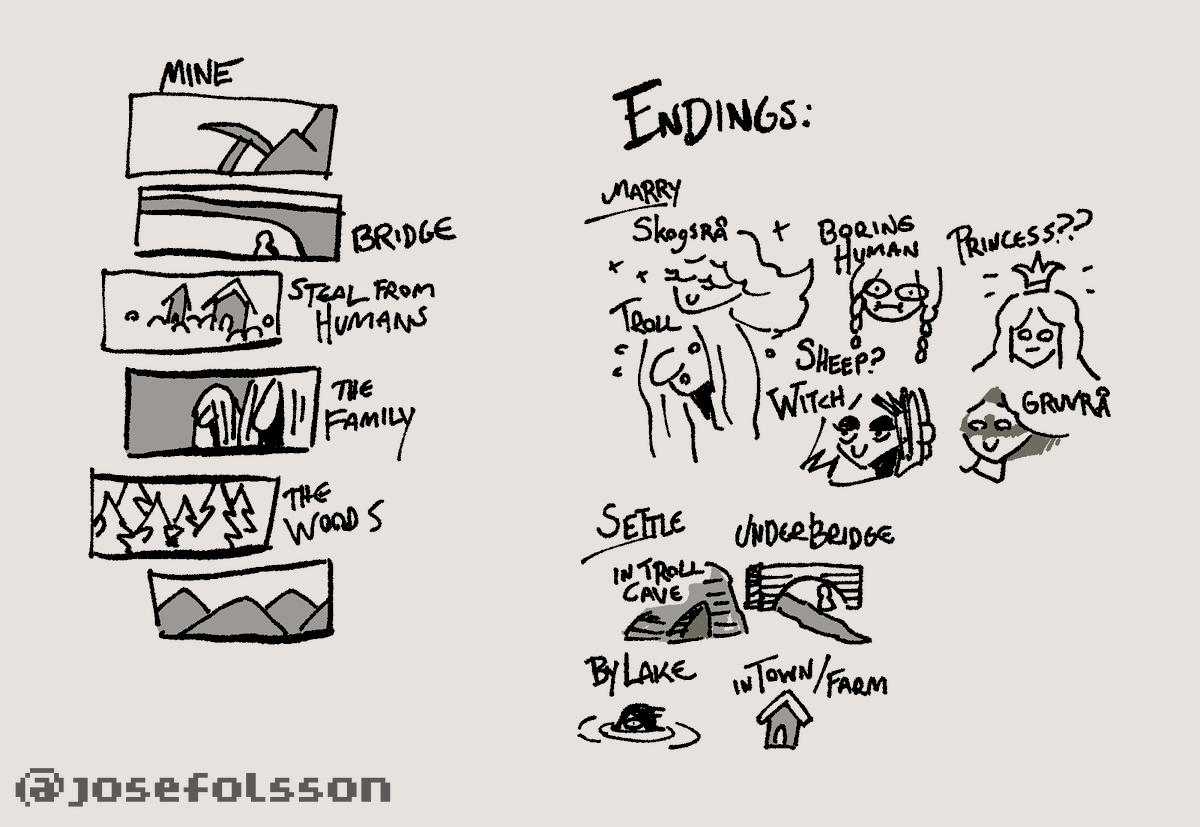 MINE
BRIDGE
STEAL FROM
HUMANS
THE
FAMILY
THE
WOODS
ENDINGS:
MARRY
SKOGSRÅ
BORING
HUMAN
PRINCESS??
TROLL
SHEEP?
WITCH
GRUVRÅ
SETTLE
IN TROLL
CAVE
UNDER BRIDGE
BY LAKE
IN TOWN/FARM
@josefolsson